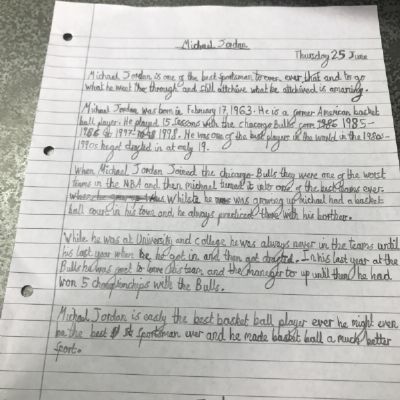 Michael Jordan
Thursday 25 June
Michael Jordan is one of the best sportsman to ever, ever, that and to go
what he went the through and still attchive what be attchived is amazing.
Michael Jordan was born in February 17, 1963. He is a former American basket
ball player. He played 15 seasons with the chacargo Bulls from 1985-
1997- 1998. He was one of the best players in the world in the 1980s-
1990s he got drafted in at only 19.
When Michael Jordan Joined the chicargo Bulls they were one of the worst
teams in the NBA and then michael turned it into one of the best teams ever.
Whilste he was growing up michael had a basket
ball court in his town and he always practiced there with his borther.
While he was at University and College he was always never in the teams until
his last year when he, he got in and then got drafted. In his last year at the
Bulls he was to leave his team, and the manager to up until then he had
won 5 championships with the Bulls.
Michael Jordan is easly the best basket ball player ever he might even
be the best sportsman ever and he made basket ball a much better
sport.